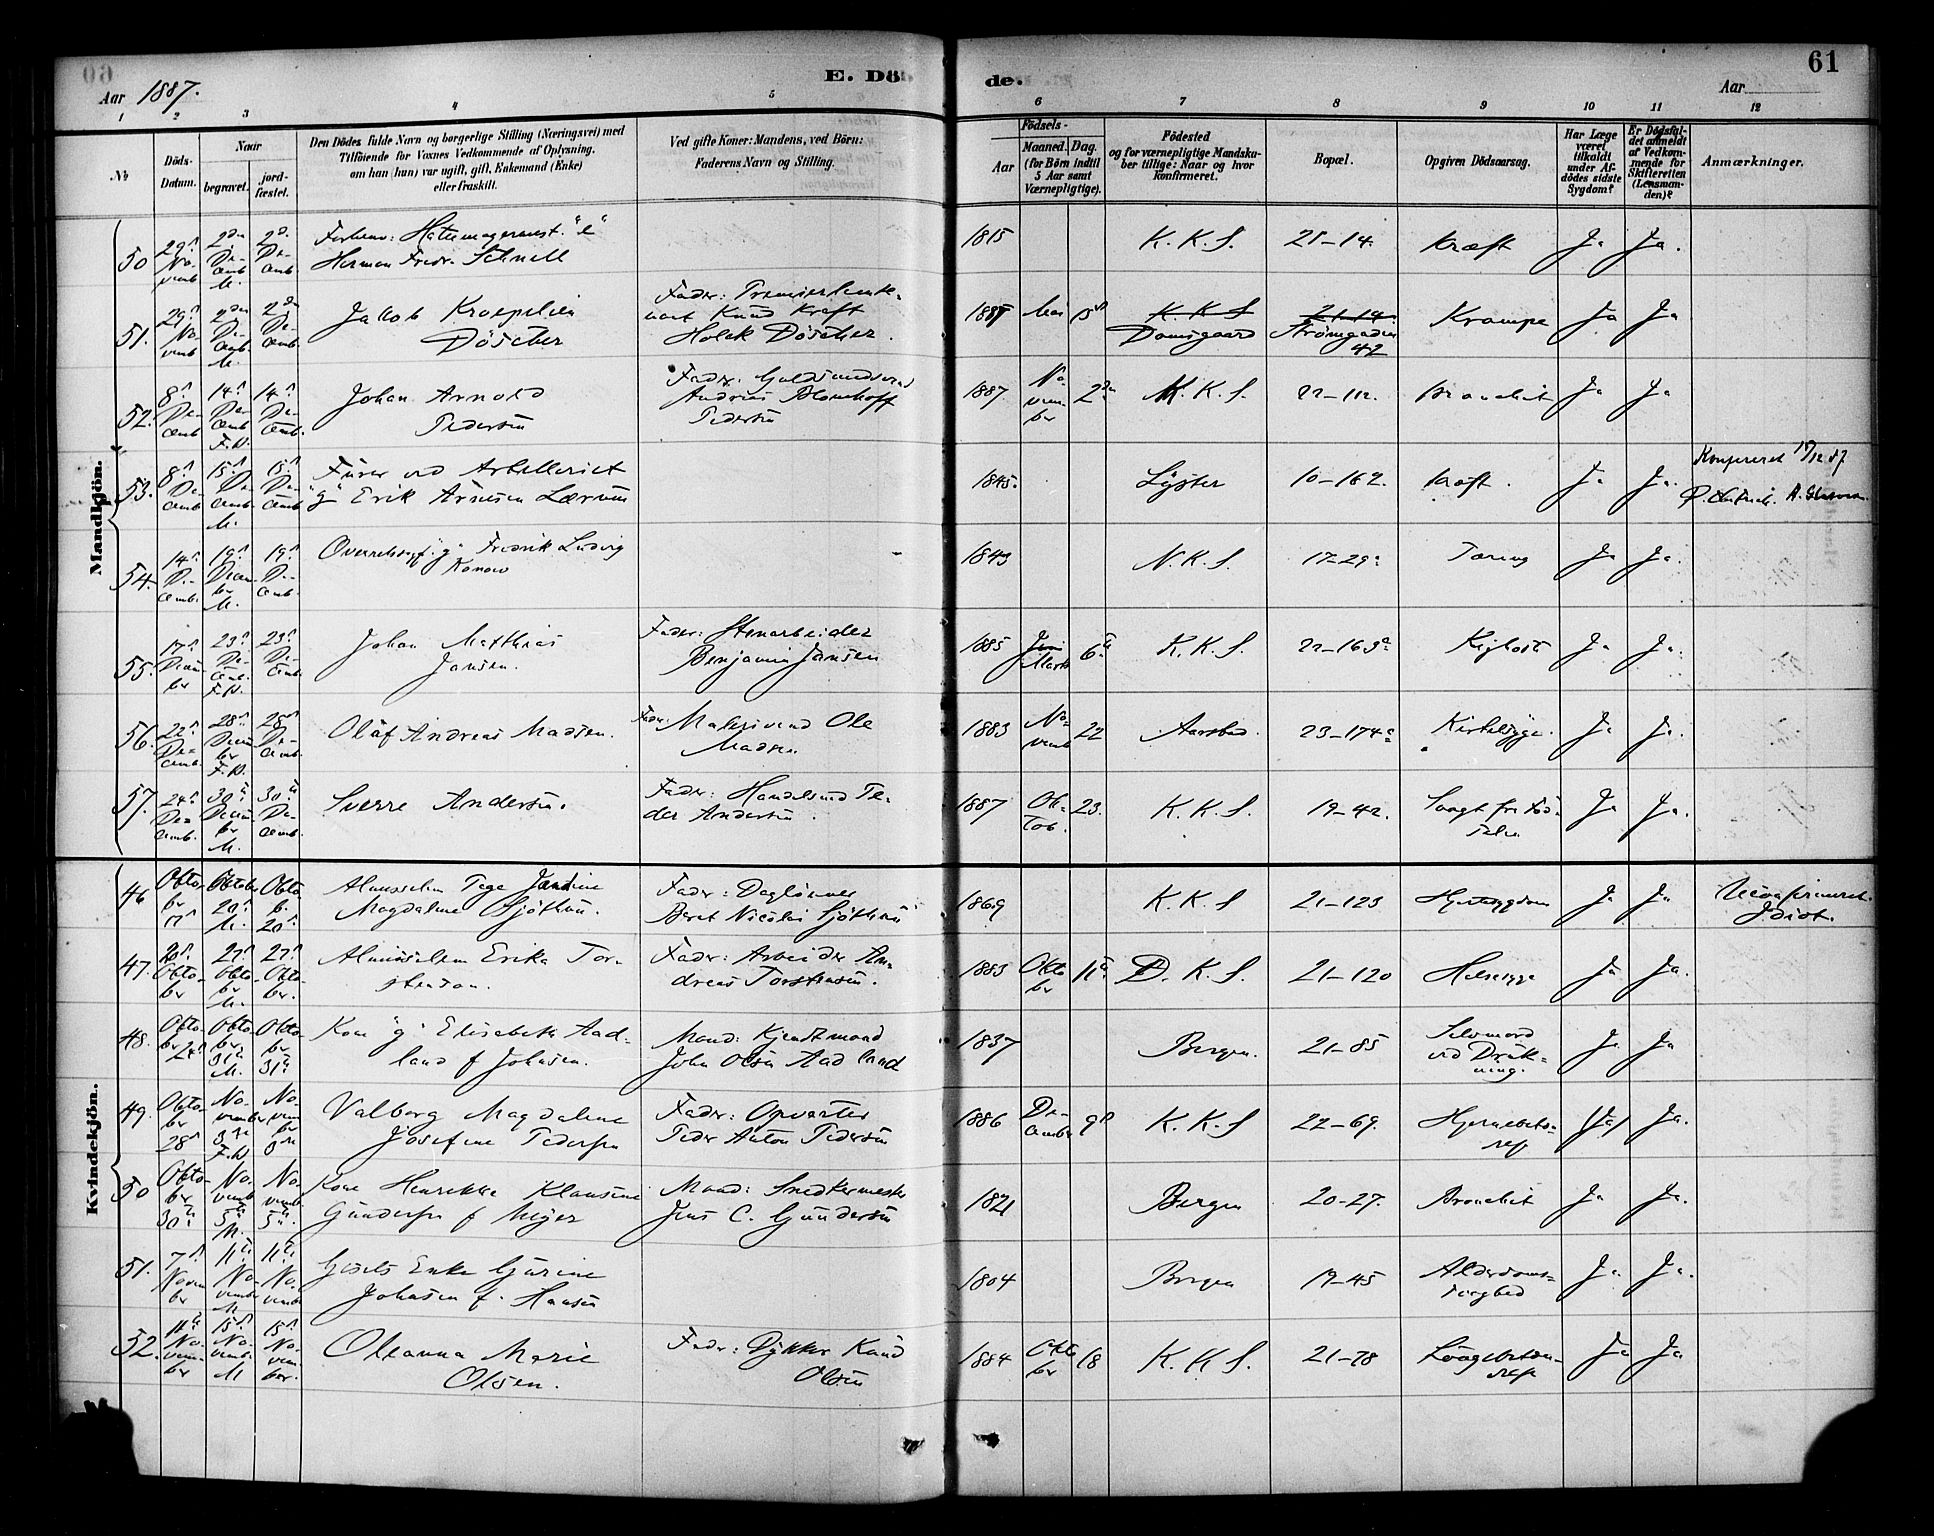 Aar 1887.
E. Döde.
61
Aar
1 2 3 4 5 6 7 8 9 10 11 12
No
Döds-Datum.
Naar
begravet.
jord-fæstet.
Den Dödes fulde Navn og borgerlige Stilling (Næringsvei) med
Tilföiende for Voxnes Vedkommende af Oplysning,
om han (hun) var ugift, gift, Enkemand (Enke)
eller fraskilt.
Ved gifte Koner: Mandens, ved Börn:
Faderens Navn og Stilling.
Födsels-
Aar
Maaned. Dag.
(for Börn indtil
5 Aar samt
Værnepligtige).
Födested
og for værnepligtige Mandska-
ber tillige: Naar og hvor
konfirmeret.
Bopæl.
Opgiven Dödsaarsag.
Har Læge
været
tilkaldt
under Af-
dödes sidste
Sygdom?
Er Dödsfal-
det anmeldt
af Vedkom-
mende for
Skifteretten
(Lensman-
den)?
Anmærkninger.
Mandkjön.
50 29 November 2den Decemb. M. 2d. Decemb.
Herman Fredr. Schnell
1815 K. K. S. 21-14. Kræft Ja Ja.
51. 29 Novemb 2den Decemb. M. 2den Decemb.
Jakob Kroepelin
Döscher
Fader: Premierleute-
nant Knud Kraft
Holck Döscher.
1887 Mai K K S
Damsgaard
21-14
Strömgaden
42
Krampe Ja Ja
52. 8 Decemb 14 Decemb. F.P. 14 Decemb.
Johan Arnold
Pedersen
Fader:
Andreas Blomhoff
Pedersen
1887 November 2den K. K. S. 22-112. Bronchit Ja Ja
53. 8 Decemb 15 Decemb M. 15 Decemb.
Furer ved Artilleriet
"g" Erik Arnesen Lærum
1845. Lyster 10-162. Kræft. Ja Ja.
54. 14 Decemb. 19 December M. 19 Decemb.
"g" Fredrik Ludvig
Konow
1843 N. K. S. 17-29a Tæring Ja Ja.
55. 17 December 23 Decemb. F.P. 23 Decemb.
Johan Matthias
Jansen.
Fader: Stenarbeider
Benjamin Jansen
1885 Juni
Marts 6te K. K. S. 22-163a Kighoste Ja Ja.
56. 22 Decemb. 28 December F.P. 28 Decemb.
Olaf Andreas Madsen.
Fader: Malersvend Ole
Madsen
1883 Novemb 22 Aarstad. 23-174a Kirtelsyge. Ja Ja.
57. 24 Decemb. 30te December M. 30te Decemb.
Sverre Andersen.
Fader: Handelsmd Pe-
der Andersen.
1887 Oktob. 23. K. K. S. 19-42. Svagt fra Föd-
selen Ja Ja.
Kvindekjön.
46 Oktober 17 Oktober 20 M. Oktob. 20
Almisselem
Magdalene Sjöthun.
Fader: Daglönner
Berent Nicolai Sjöthun
1869 K K S. 21-123 Hjertesygdom Ja Ja
Idiot.
47. 20 Oktober 27 Oktober M. 27 Oktober.
Almisselem Erika Tor-
stensen.
Fader: Arbeider An-
dreas Torstensen.
1883 Oktober 11te D. K. S. 21-120 Halssyge Ja Ja.
48. Oktober 24 Oktober 31te M. Oktober 31te
Kone "g" Elisabeth Aad-
land f Johnsen.
Mand: Kjendtmand
John Olsen Aadland
1837 Bergen. 21-85 Selvmord
ved Druk-
ning. Ja Ja
49. Oktober 28 November 3die F.P. November 3die
Valborg Magdalene
Josefine Pedersen
Fader: Opvarter
Peder Anton Pedersen
1886 December 9 K. K. S 22-69. Hjernebetæn-
delse (Ja) Ja.
50 Oktober 30te Novemb 5te M. Novemb 5te
Kone Henrikke Klausine
Gundersen f Meyer
Mand: Snedkermester
Jens C. Gundersen
1821 Bergen 20-27. Bronchit Ja Ja.
51. 7 November 11te November M 11te Novembr
Enke Gurine
Johnsen f. Hansen
1804 Bergen 19-45 Alderdoms-
Ja. Ja.
52. 11te November 15 Novemb. M 15 November.
Oleanna Marie
Olsen.
Fader: Dykker Knud
Olsen
1884 Oktober 18 K. K. S. 21-78 Lungebetæn-
delse Ja Ja